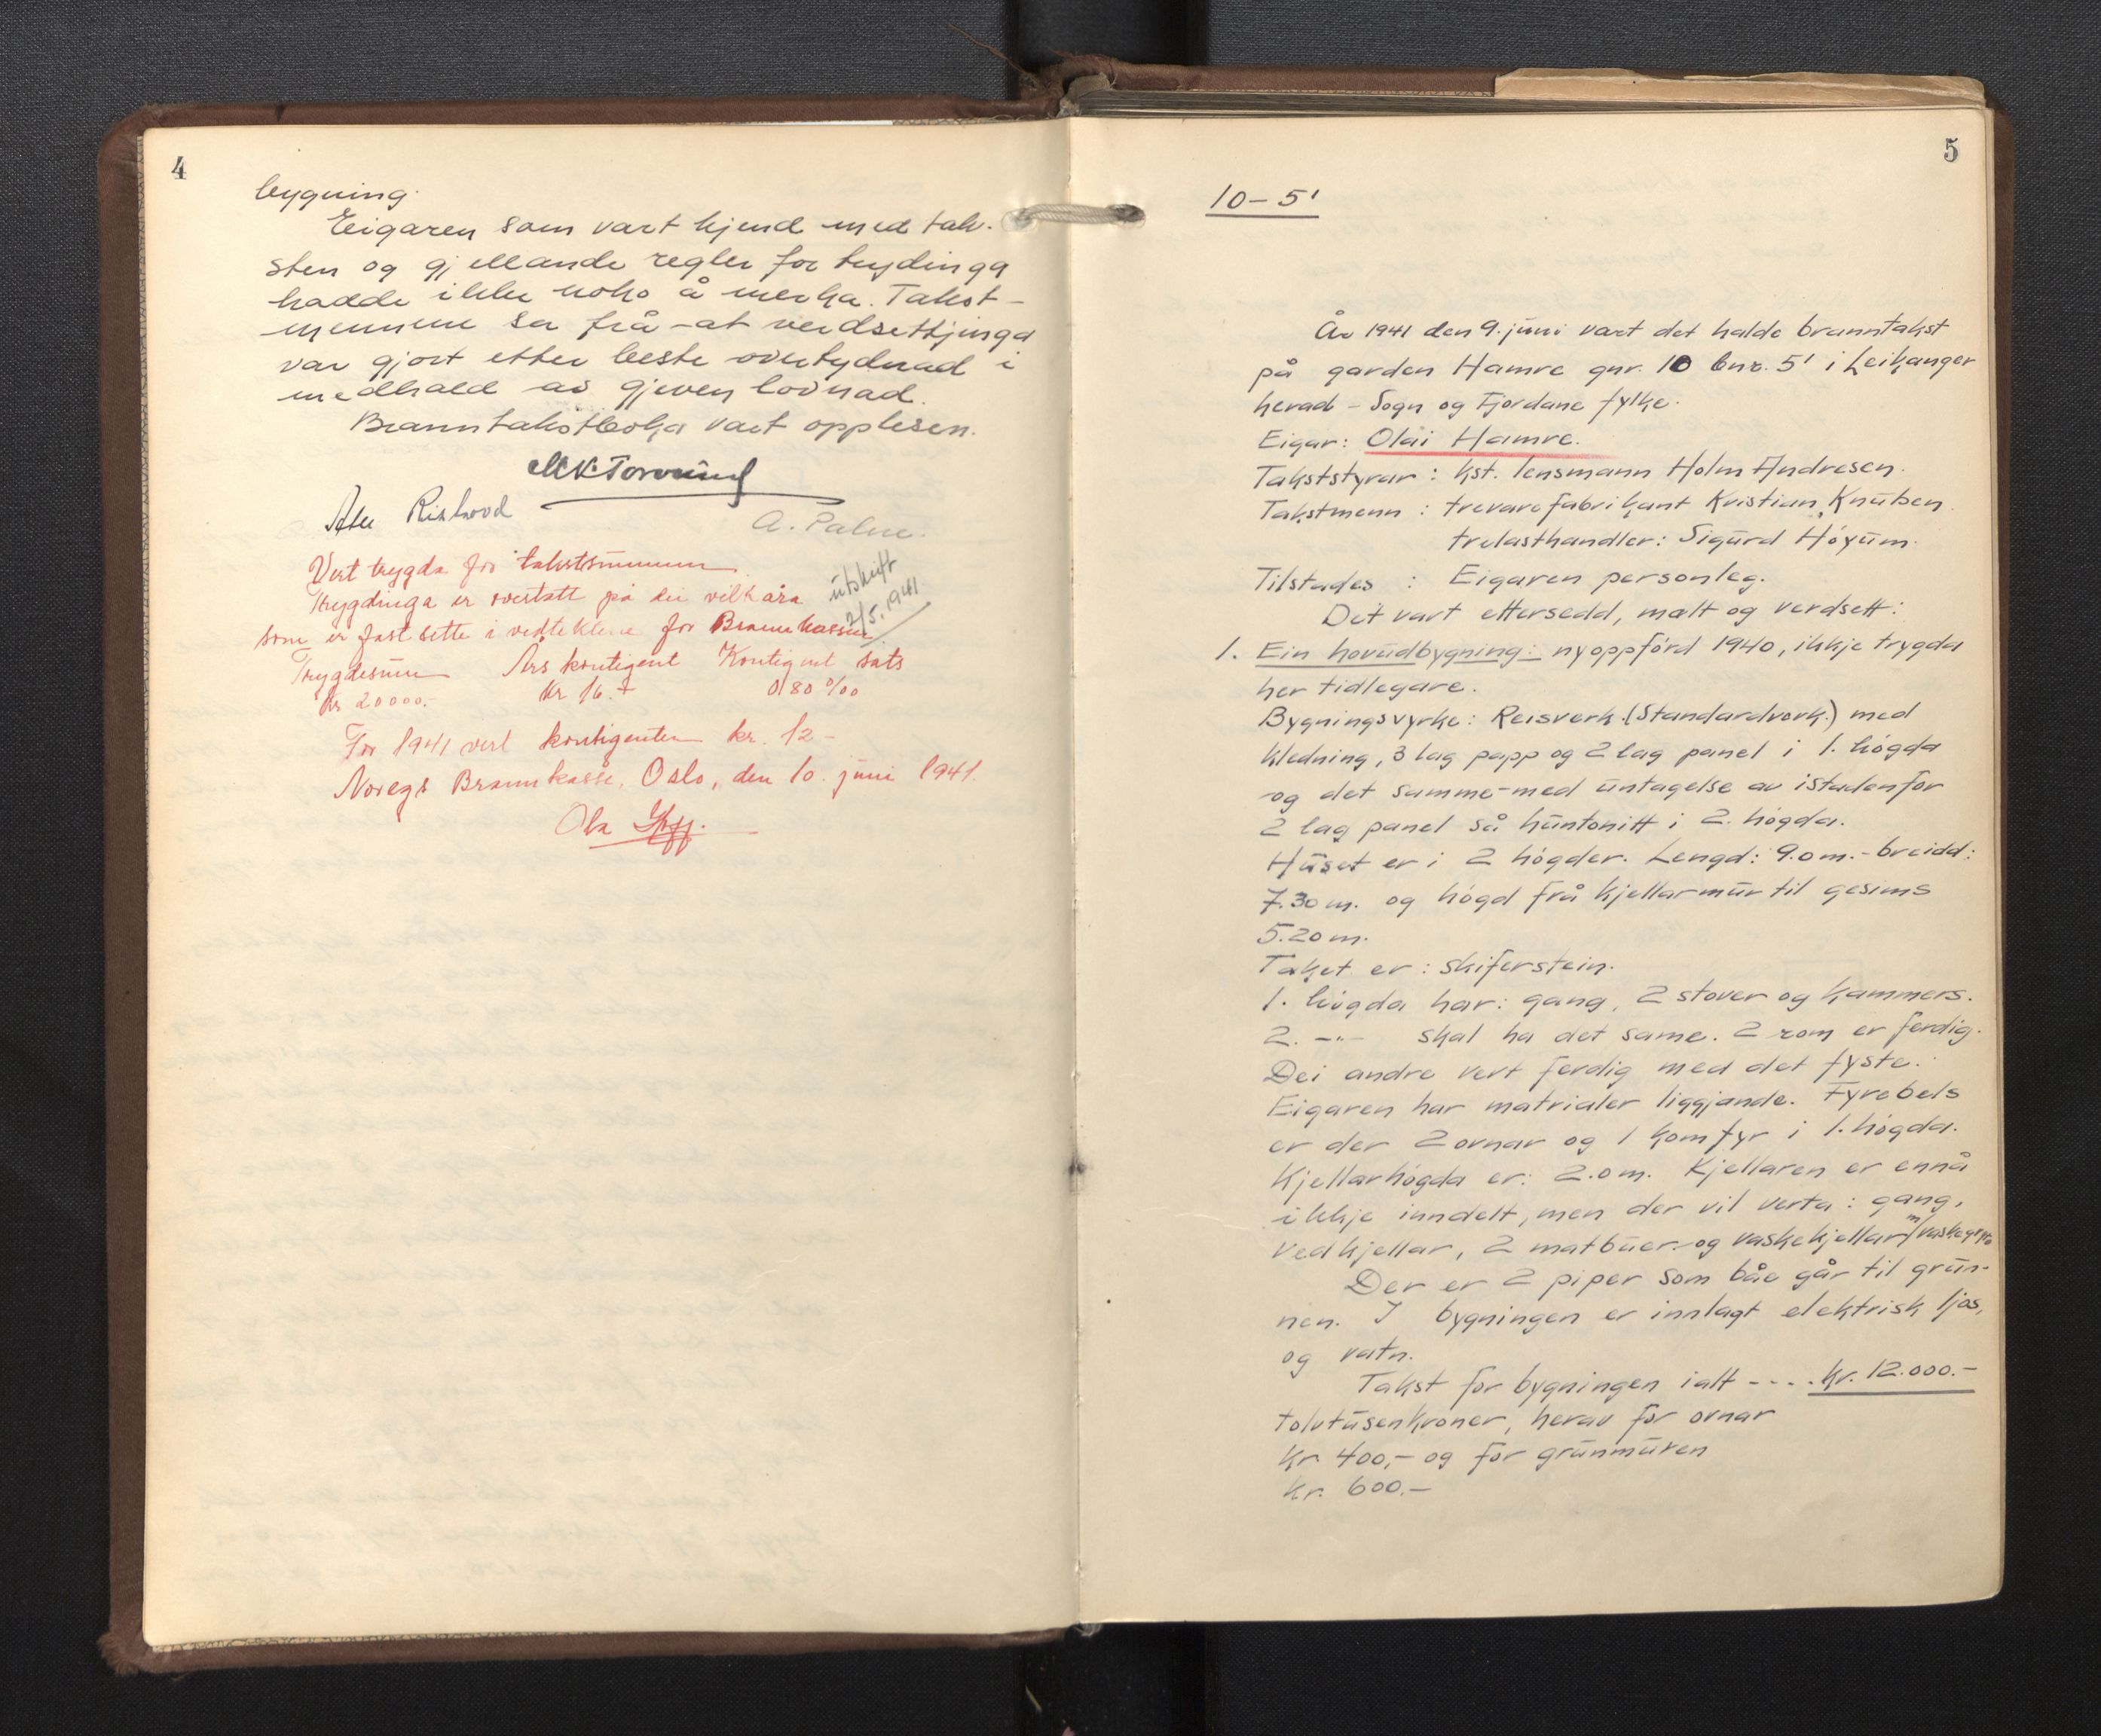 4
bygning.
Eigaren som vart kjend med tak-
sten og gjellande regler for trydinga
hadde ikkje noko å merka. Takst-
mennene sa frå at verdsettjinga
var gjort etter beste overtydnad i
medhald av gjeven lovnad.
Branntakstboka vart opplesen.
A. Palme.
Vert trygda for takstsummen
Trygdinga er overtatt på dei vilkåra
utskrift
2/5.1941
som er fastsette i vedtektene for Brannkassen
Trygdesum Års kontigent Kontigent sats
Kr 20000.- Kr 16.- 0,80 ‰
For 1941 vert kontigenten kr. 12-
Noregs Brannkasse, Oslo, den 10. juni 1941.
Ola
5
10-5'
År 1941 den 9. juni vart det halde branntakst
på garden Hamre gnr. 10 bnr. 5' i Leikanger
herad - Sogn og Fjordane fylke.
Eigar: Olai Hamre.
Takststyrar: kst. lensmann Holm Andresen.
Takstmenn: trevarefabrikant Kristian Knutsen.
trelasthandler: Sigurd Høyum.
Tilstades: Eigaren personleg.
Det vart ettersedd, målt og verdsett:
1. Ein hovudbygning: nyoppförd 1940, ikkje trygda
her tidlegare.
Bygningsvyrke: Reisverk. (Standardverk.) med
kledning, 3 lag papp og 2 lag panel i 1. högda
og det samme - med untagelse av istadenfor
2 lag panel så huntonitt i 2. högda.
Huset er i 2 högder. Lengd: 9.0 m. - breidd:
7.30 m. og högd frå kjellarmur til gesims
5.20 m.
Taket er: skiferstein.
1. högda har: gang, 2 stover og kammers.
2. -"- skal ha det same. 2 rom er ferdig.
Dei andre vert ferdig med det fyste.
Eigaren har matrialer liggjande. Fyrebels
er der 2 ovnar og 1 komfyr i 1. högda.
Kjellarhögda er: 2.0 m. Kjellaren er ennå
ikkje inndelt, men der vil verta: gang,
vedkjellar, 2 matbuer og vaskekjellar m/vaskegryte
Der er 2 piper som båe går til grun-
nen. I bygningen er innlagt elektrisk ljos,
og vatn.
Takst for bygningen ialt ---- kr. 12.000.-
tolvtusenkroner, herav for ovnar
kr 400,- og for grunmuren
kr. 600.-